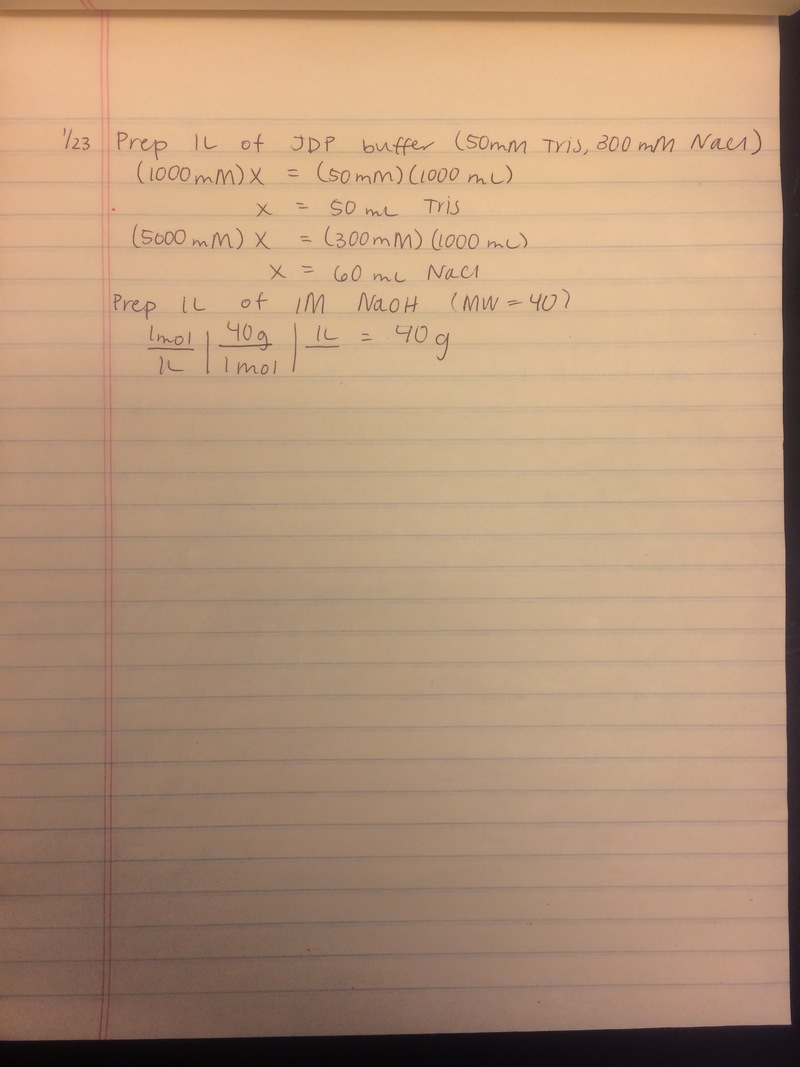 1/23 Prep 1L of JDP buffer (50mM Tris, 300 mM NaCl)
(1000mM)X = (50mM)(1000 mL)
X = 50 mL Tris
(5000mM)X = (300mM)(1000 mL)
X = 60 mL NaCl
Prep 1L of 1M NaOH (MW = 40)
1mol/1L | 40g/1mol | 1L = 40g